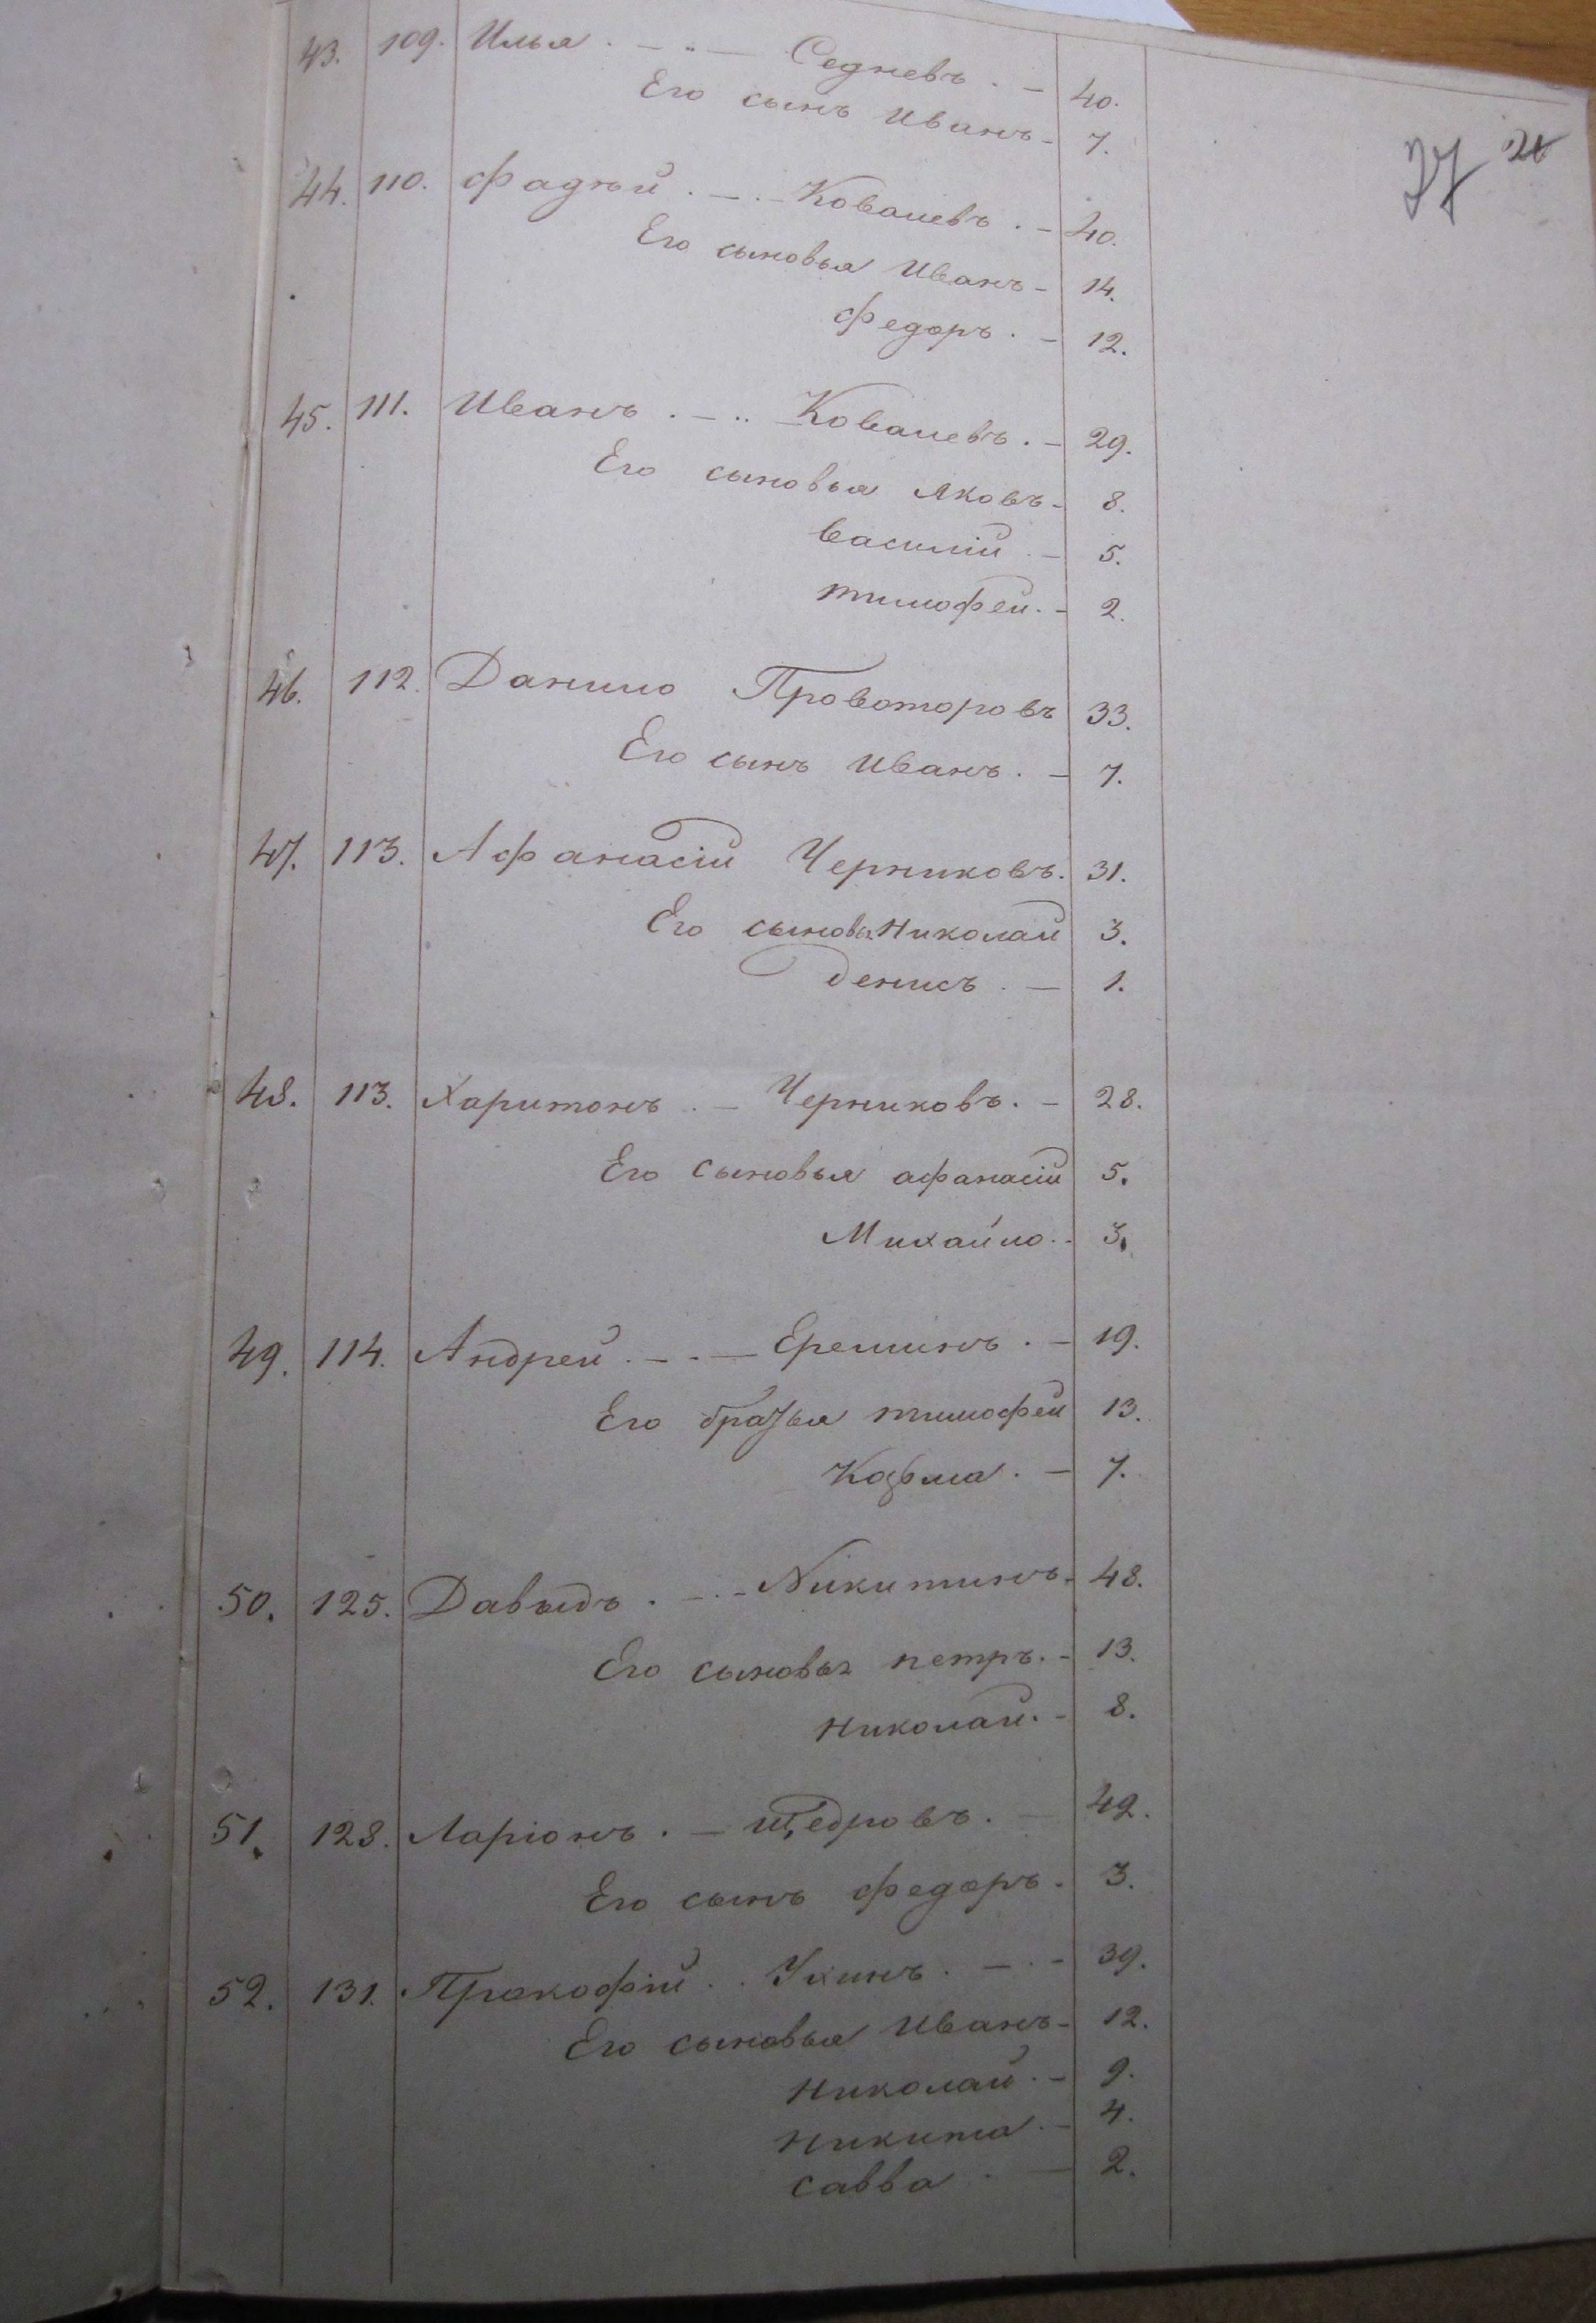 43. 109. Илья . — .. — Седневъ . — 40.
Его сынъ Иванъ - 7.
44. 110. Фадѣй . — . - Ковалевъ . - 40.
Его сыновья Иванъ - 14.
Федоръ . - 12.
45. 111. Иванъ . — .. Ковалевъ . - 29.
Его сыновья Яковъ - 8.
Василій . - 5.
Тимофей . - 2.
46. 112. Данило Провоторовъ 33.
Его сынъ Иванъ . - 7.
47. 113. Афанасій Черниковъ. 31.
Его сыновья Николай 3.
Денисъ . — 1.
48. 113. Харитонъ . — Черниковъ . - 28.
Его сыновья афанасій 5.
Михайло . - 3.
49. 114. Андрей . — . — Ереминъ . - 19.
Его братья тимофей 13.
Козьма . — 7.
50. 125. Давыдъ . — . - Никитинъ - 48.
Его сыновья петръ . - 13.
Николай . - 8.
51. 128. Ларіонъ . — щедровъ . — 42.
Его сынъ федоръ . 3.
52. 131. Прокофій . . Ухинъ . — . - 39.
Его сыновья Иванъ - 12.
Николай . - 9.
Никита . - 4.
савва . — 2.